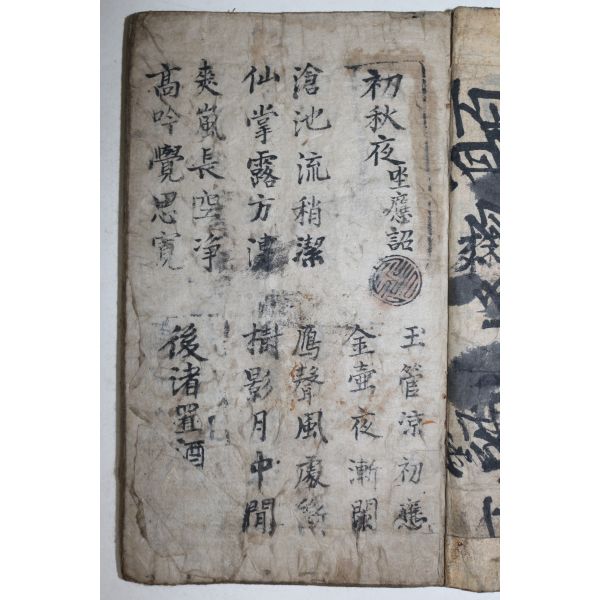 初秋夜坐應詔
玉管涼初應
金壺夜漸闌
滄池流稍潔
仙掌露方漙
鴈聲風處斷
樹影月中閒
爽嵐長空净
高吟覺思寬
後渚置酒